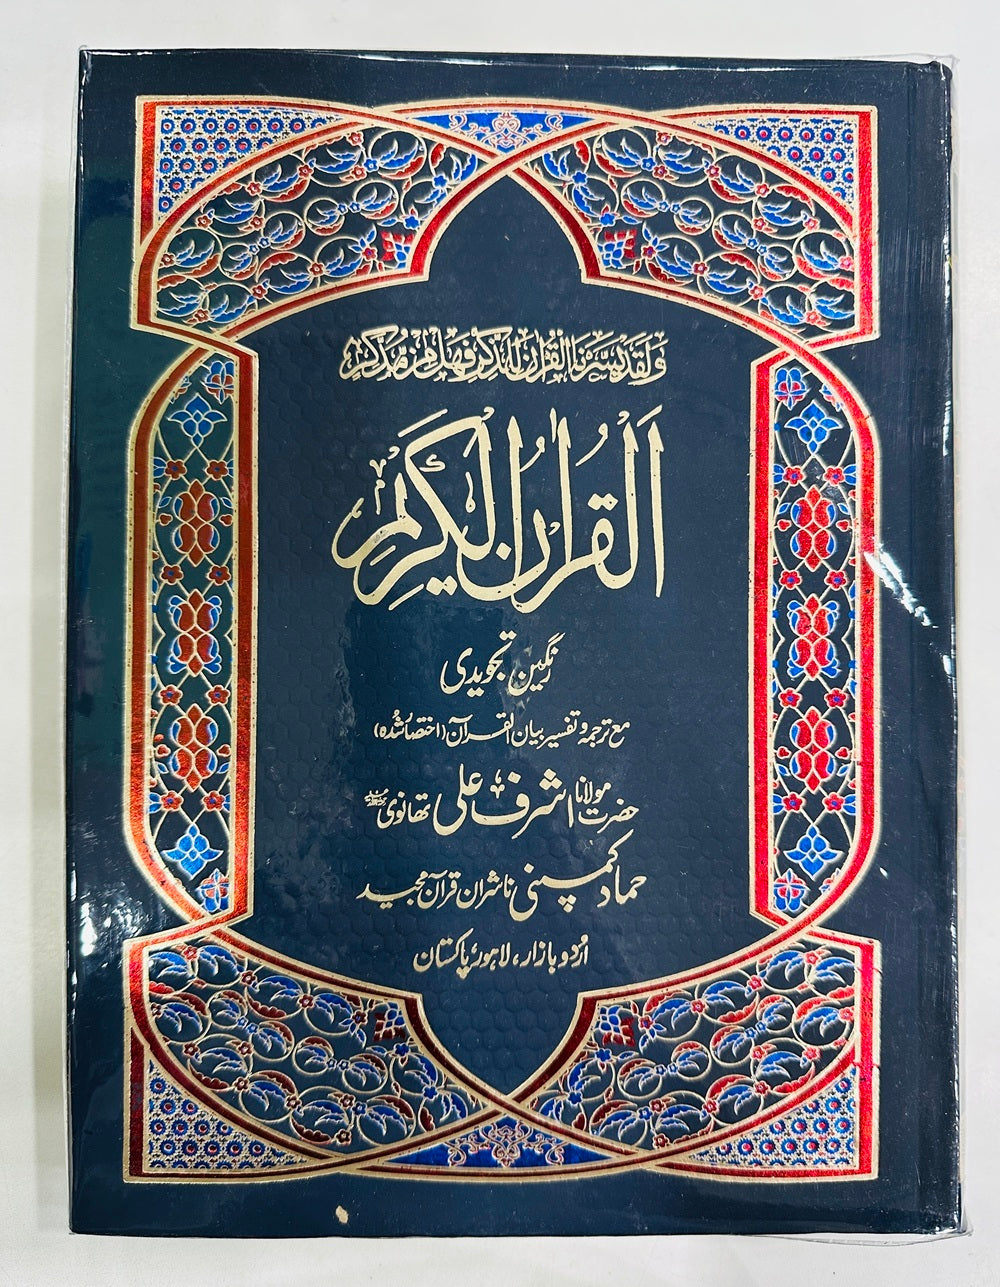 وَلَقَدْ يَسَّرْنَا الْقُرْاٰنَ لِلذِّكْرِ فَهَلْ مِنْ مُّدَّكِرٍ
اَلْقُرْاٰنُ الْكَرِيْمُ
رنگین تجویدی
مع ترجمہ و تفسیر بیان القرآن (اختصار شدہ)
حضرت مولانا اشرف علی تھانوی
حماد کمپنی ناشران قرآن مجید
اُردو بازار، لاہور، پاکستان